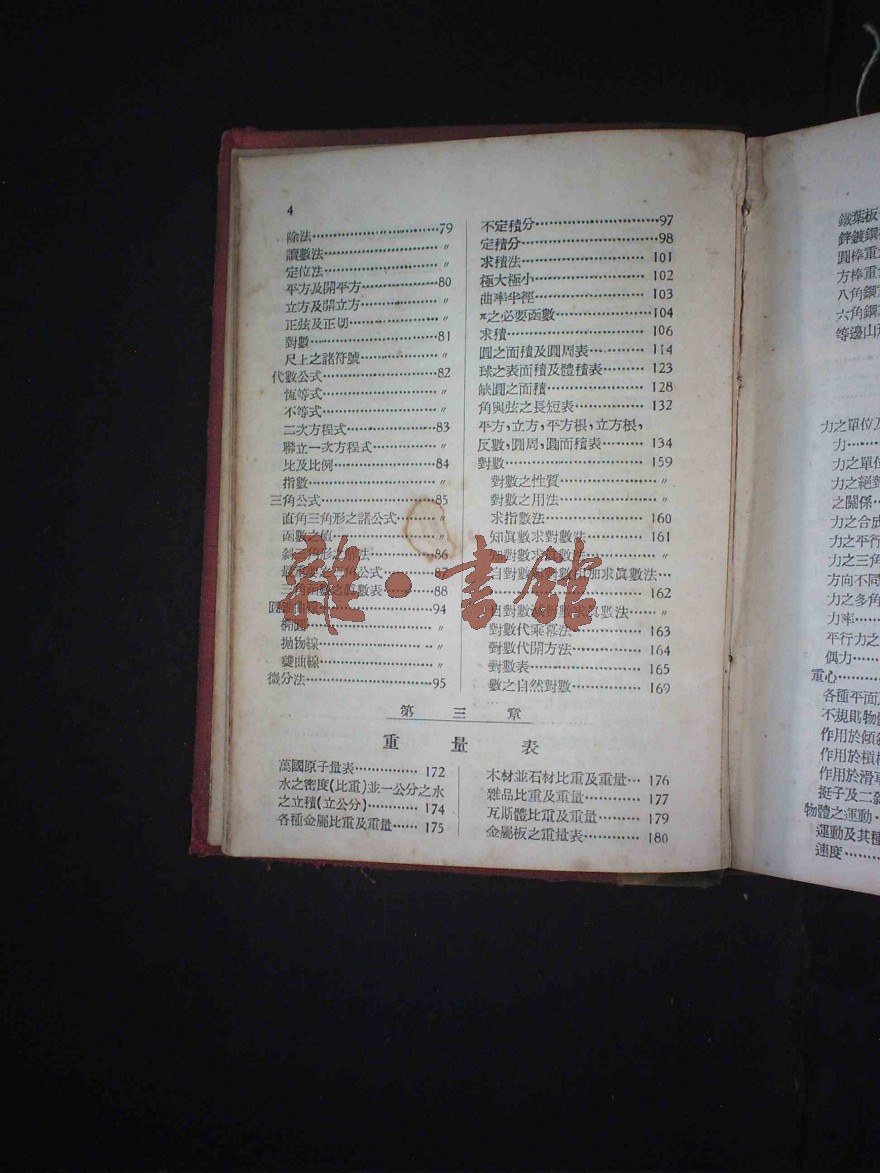 4
除法……………………79
讀數法……………………〃
定位法……………………〃
平方及開平方……………80
立方及開立方……………〃
正弦及正切………………〃
對數………………………81
尺上之諸符號……………〃
代數公式…………………82
恆等式……………………〃
不等式……………………〃
二次方程式………………83
聯立一次方程式…………〃
比及比例…………………84
指數………………………〃
三角公式…………………85
直角三角形之諸公式……〃
函數之值…………………〃
86
公式……87
眞數表……88
94
〃
拋物線……………………〃
雙曲線……………………〃
微分法……………………95
不定積分…………………97
定積分……………………98
求積法……………………101
極大極小…………………102
曲率半徑…………………103
π之必要函數……………104
求積………………………106
圓之面積及圓周表………114
球之表面積及體積表……123
缺圓之面積………………128
角與弦之長短表…………132
平方,立方,平方根,立方根,
反數,圓周,圓面積表……134
對數………………………159
對數之性質………………〃
對數之用法………………〃
求指數法…………………160
知眞數求對數法…………161
知對數求眞數……〃
加求眞數法…
162
眞數法……〃
對數代乘冪法……………163
對數代開方法……………164
對數表……………………165
數之自然對數……………169
第三章
重量表
萬國原子量表……………172
水之密度(比重)並一公分之水
之立積(立公分)…………174
各種金屬比重及重量……175
木材並石材比重及重量…176
雜品比重及重量…………177
瓦斯體比重及重量………179
金屬板之重量表…………180
雜·書館
鐵葉板
鋅鍍鋼
圓棒重
方棒重
八角鋼
六角鋼
等邊山
力之單位及
力……
力之單位
力之絕對
之關係…
力之合成
力之平行
力之三角
方向不同
力之多角
力率……
平行力之
偶力……
重心………
各種平面
不規則物
作用於傾斜
作用於槓桿
作用於滑車
挺子及二
物體之運動·
運動及其種
速度………